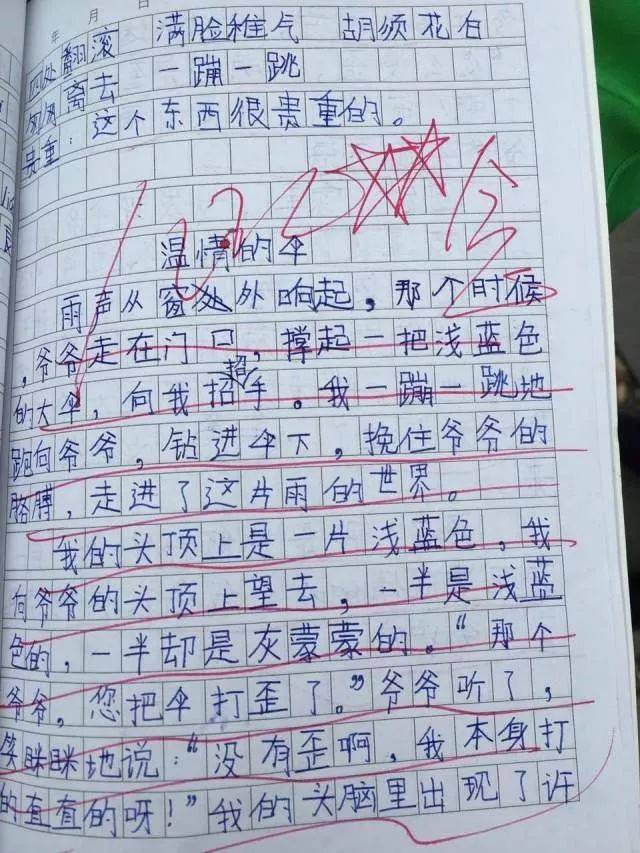 年 月 日
四处翻滚 满脸稚气 胡须花白
匆匆离去 一蹦一跳
贵重：这个东西很贵重的。
温情的伞
雨声从窗处外响起，那个时候
，爷爷走在门口，撑起一把浅蓝色
的大伞，向我招手。我一蹦一跳地
跑向爷爷，钻进伞下，挽住爷爷的
胳膊，走进了这片雨的世界。
我的头顶上是一片浅蓝色，我
向爷爷的头顶上望去，一半是浅蓝
色的，一半却是灰蒙蒙的。“那个
爷爷，您把伞打歪了。”爷爷听了，
笑眯眯地说：“没有歪啊，我本身打
的直直的呀！”我的头脑里出现了许